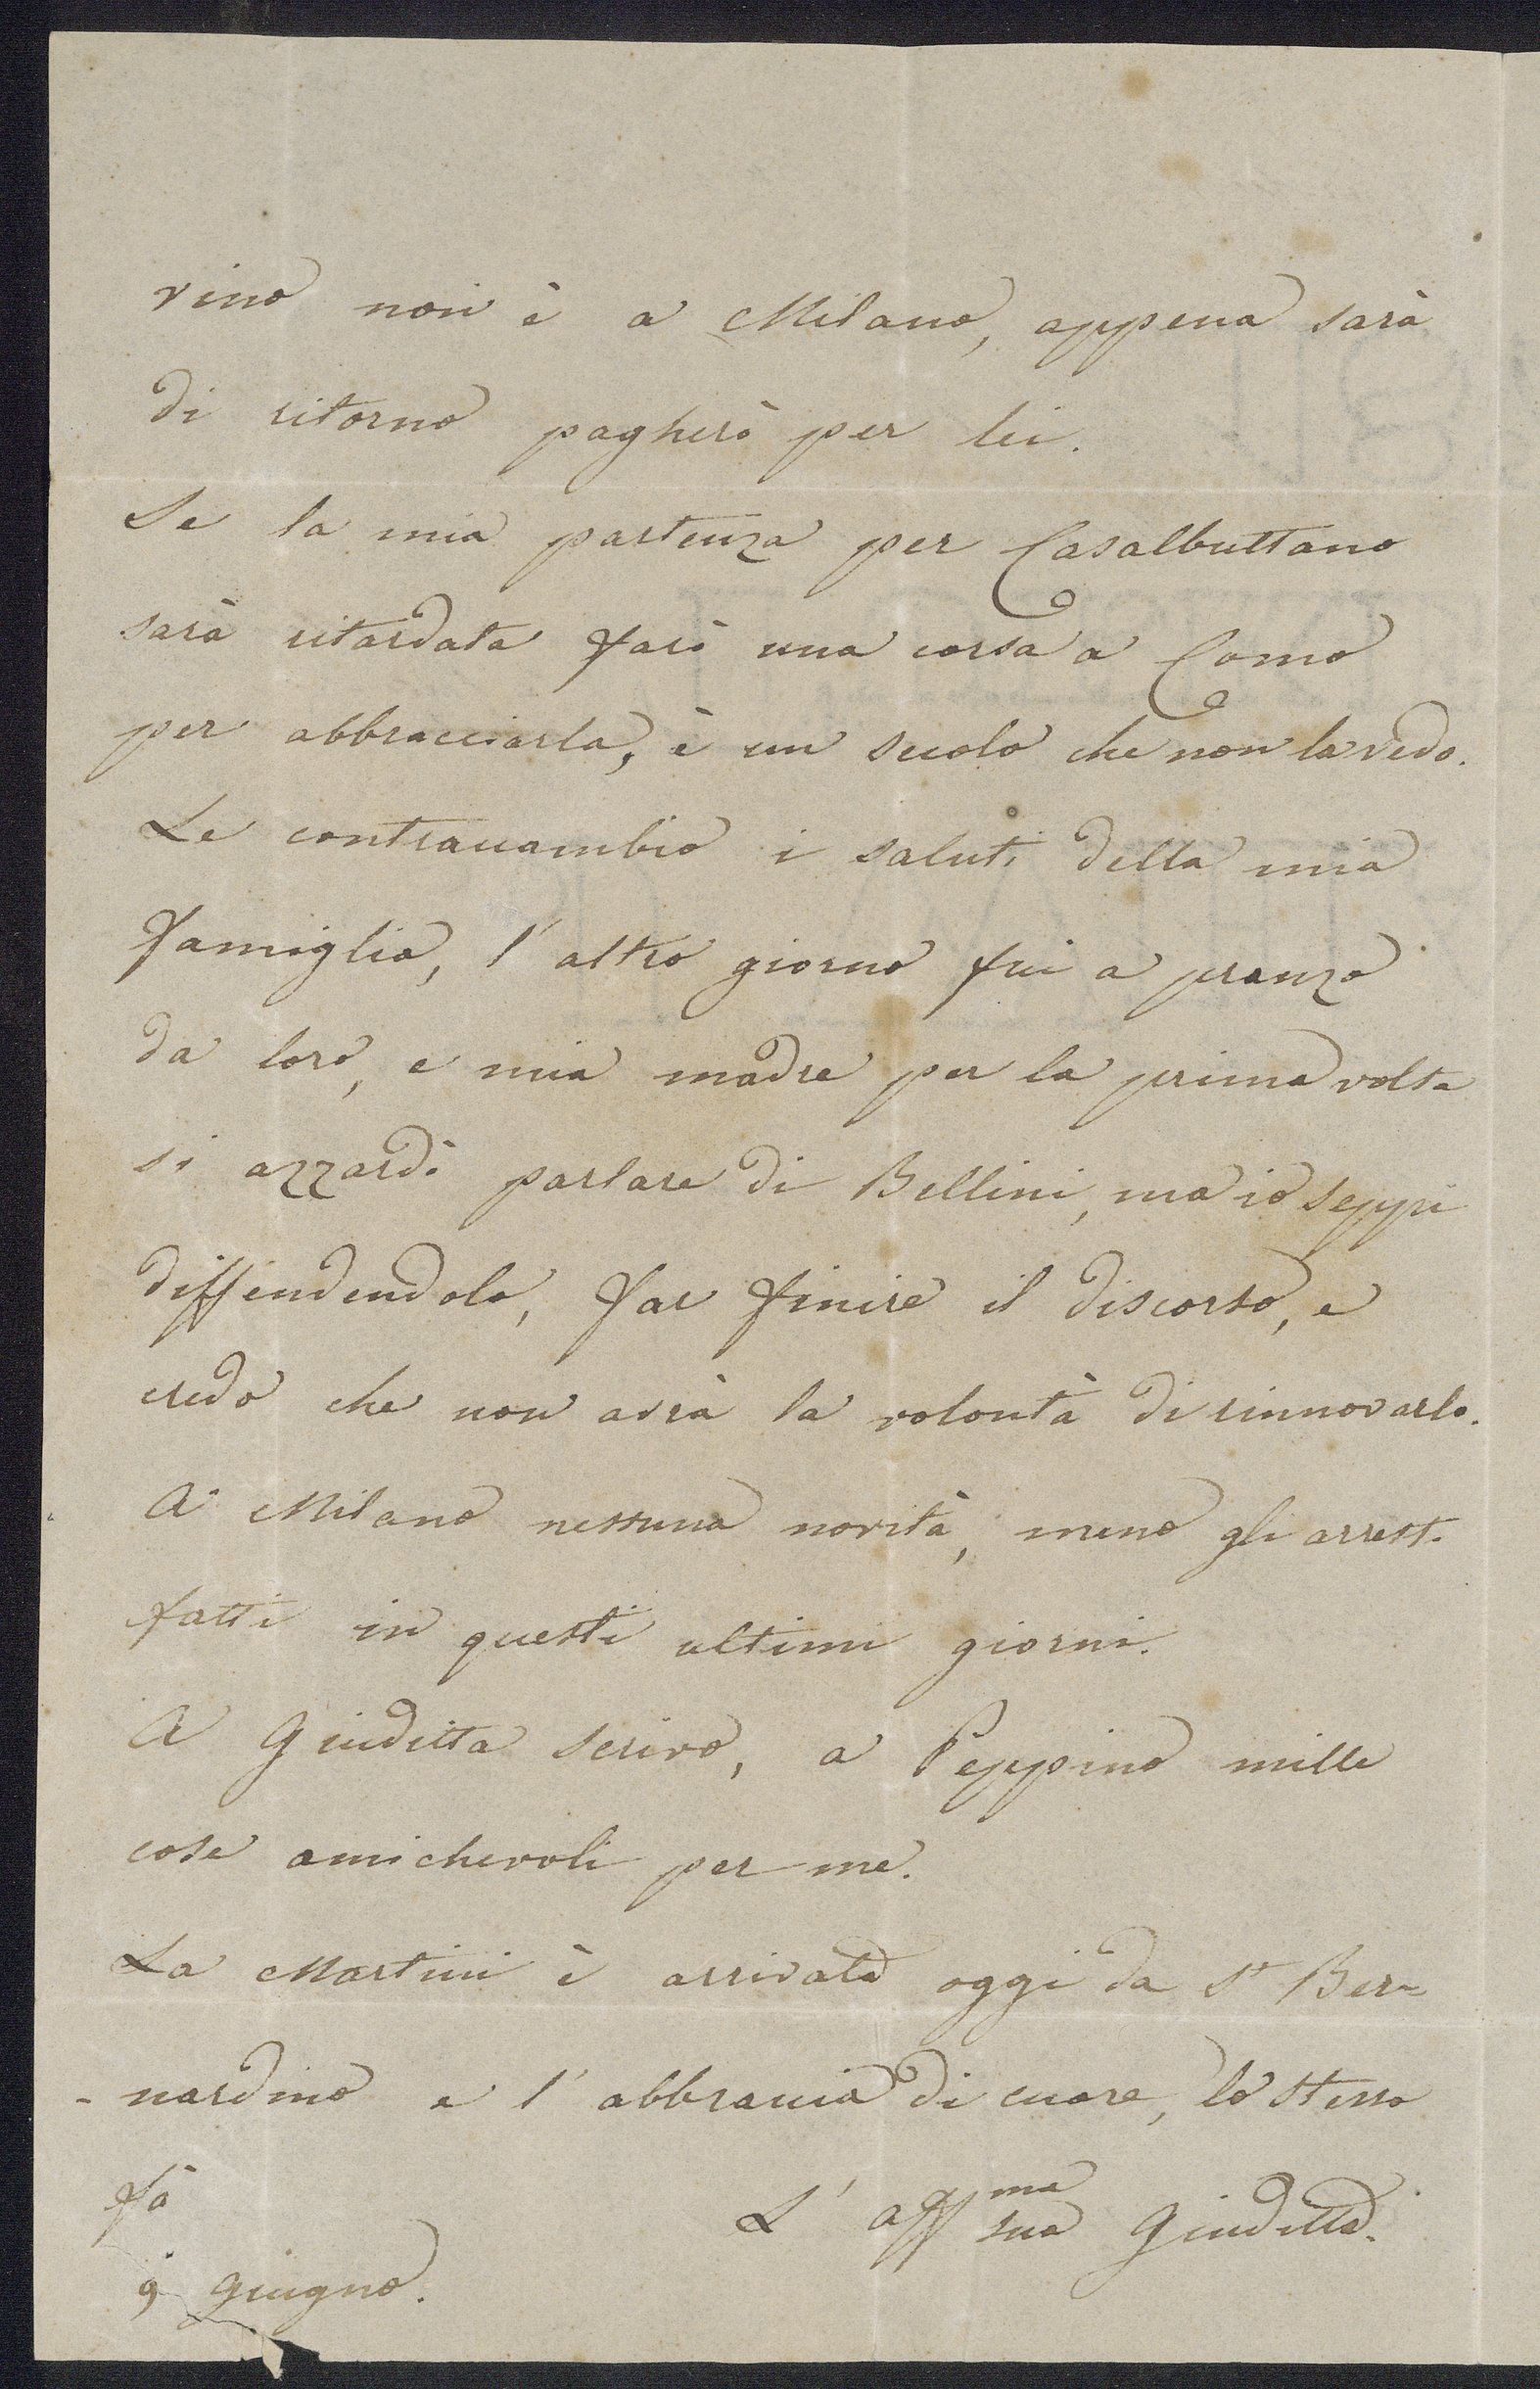 vino non è a Milano, appena sarà
di ritorno pagherò per lei.
Se la mia partenza per Casalbuttano
sarà ritardata farò una corsa a Como
per abbracciarla, è un secolo che non la vedo.
Le contraccambio i saluti della mia
famiglia, l'altro giorno fui a pranzo
da loro, e mia madre per la prima volta
si azzardò parlare di Bellini, ma io seppi
diffendendolo, far finire il discorso, e
credo che non avrà la volontà di rinnovarlo.
A Milano nessuna novità, meno gli arresti
fatti in questi ultimi giorni.
A Giuditta scrivo, a Peppino mille
cose amichevoli per me.
La Martini è arrivata oggi da Sn Ber-
-nardino e l'abbraccia di cuore, lo stesso
fà L'affma sua Giuditta.
9 giugno.